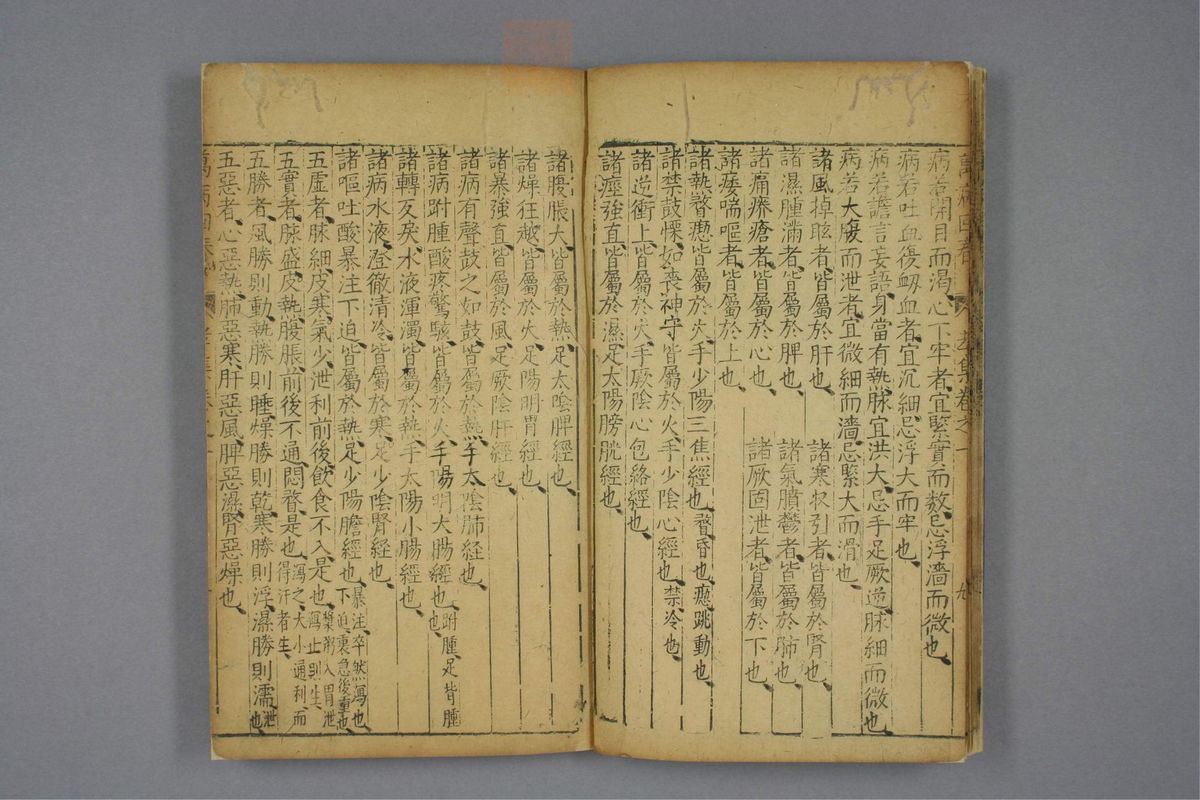 病若開目而渴心下牢者宜緊實而数忌浮濇而微也
病若吐血復衂血者宜沉細忌浮大而牢也
病若譫言妄語身當有熱脉宜洪大忌手足厥逆脉細而微也
病若大腹而泄者宜微細而濇忌緊大而滑也
諸風掉眩者皆屬於肝也 諸寒收引者皆屬於腎也
諸濕腫滿者皆屬於脾也 諸氣膹鬱者皆屬於肺也
諸痛癢瘡者皆屬於心也 諸厥固泄者皆屬於下也
諸痿喘嘔者皆屬於上也
諸熱瞀瘛皆屬於火手少陽三焦經也瞀昏也瘛跳動也
諸禁鼓慄如喪神守皆屬於火手少陰心經也禁冷也
諸逆衝上皆屬於火手厥陰心包絡經也
諸痙強直皆屬於濕足太陽膀胱經也
諸腹脹大皆屬於熱足太陰脾經也
諸燥狂越皆屬於火足陽明胃經也
諸暴強直皆屬於風足厥陰肝經也
諸病有聲鼓之如鼓皆屬於熱手太陰肺経也
諸病胕腫酸疼驚駭皆屬於火手陽明大腸經也胕腫足背腫也
諸轉反戾水液渾濁皆屬於熱手太陽小腸經也
諸病水液澄徹清冷皆屬於寒足少陰腎経也
諸嘔吐酸暴注下迫皆屬於熱足少陽膽經也暴注卒然瀉也下迫裏急後重也
五虛者脉細皮寒氣少泄利前後飲食不入是也漿粥入胃泄瀉止則生
五實者脉盛皮熱腹脹前後不通悶瞀是也瀉之大小通利而得汗者生
五勝者風勝則動熱勝則腫燥勝則乾寒勝則浮濕勝則濡泄也
五惡者心惡熱肺惡寒肝惡風脾惡濕腎惡燥也